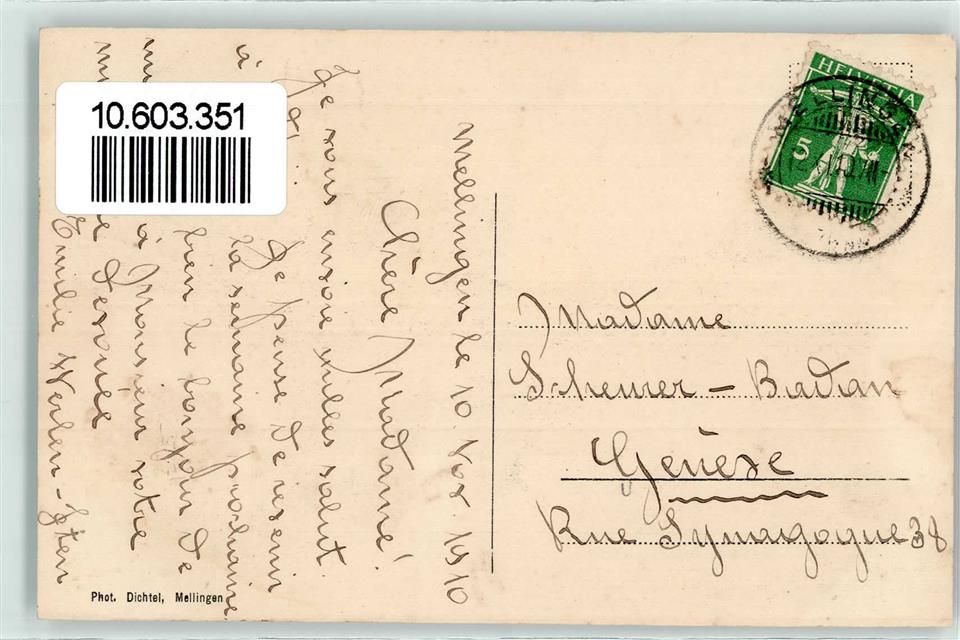 10.603.351
HELVETIA
5
MELLINGEN
Mellingen le 10. Nov. 1910
Chère Madame!
Je vous envoie milles salut.
Je pense de revenir
à la semaine prochaine
bien le bonjour de
à Monsieur votre
Desirée
Emilie Werlen-
Madame
Scheurer-Badan
Genève
Rue Synagogue 38
Phot. Dichtel, Mellingen